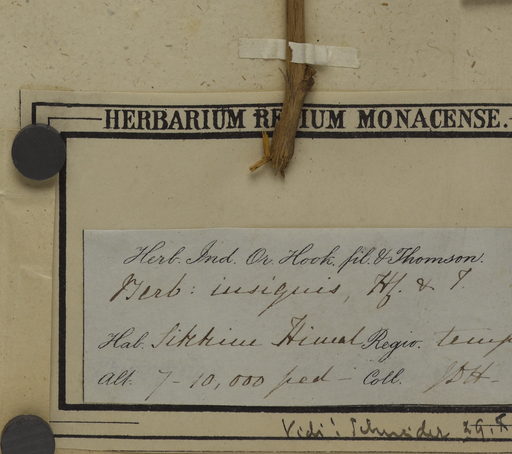 HERBARIUM REGIUM MONACENSE.
Herb. Ind. Or. Hook. fil. & Thomson.
Berb: insignis, Hf. & T.
Hab. Sikkim Himal Regio. temp
Alt. 7-10,000 ped - Coll. JDH-
Vidi! Schneider 29.